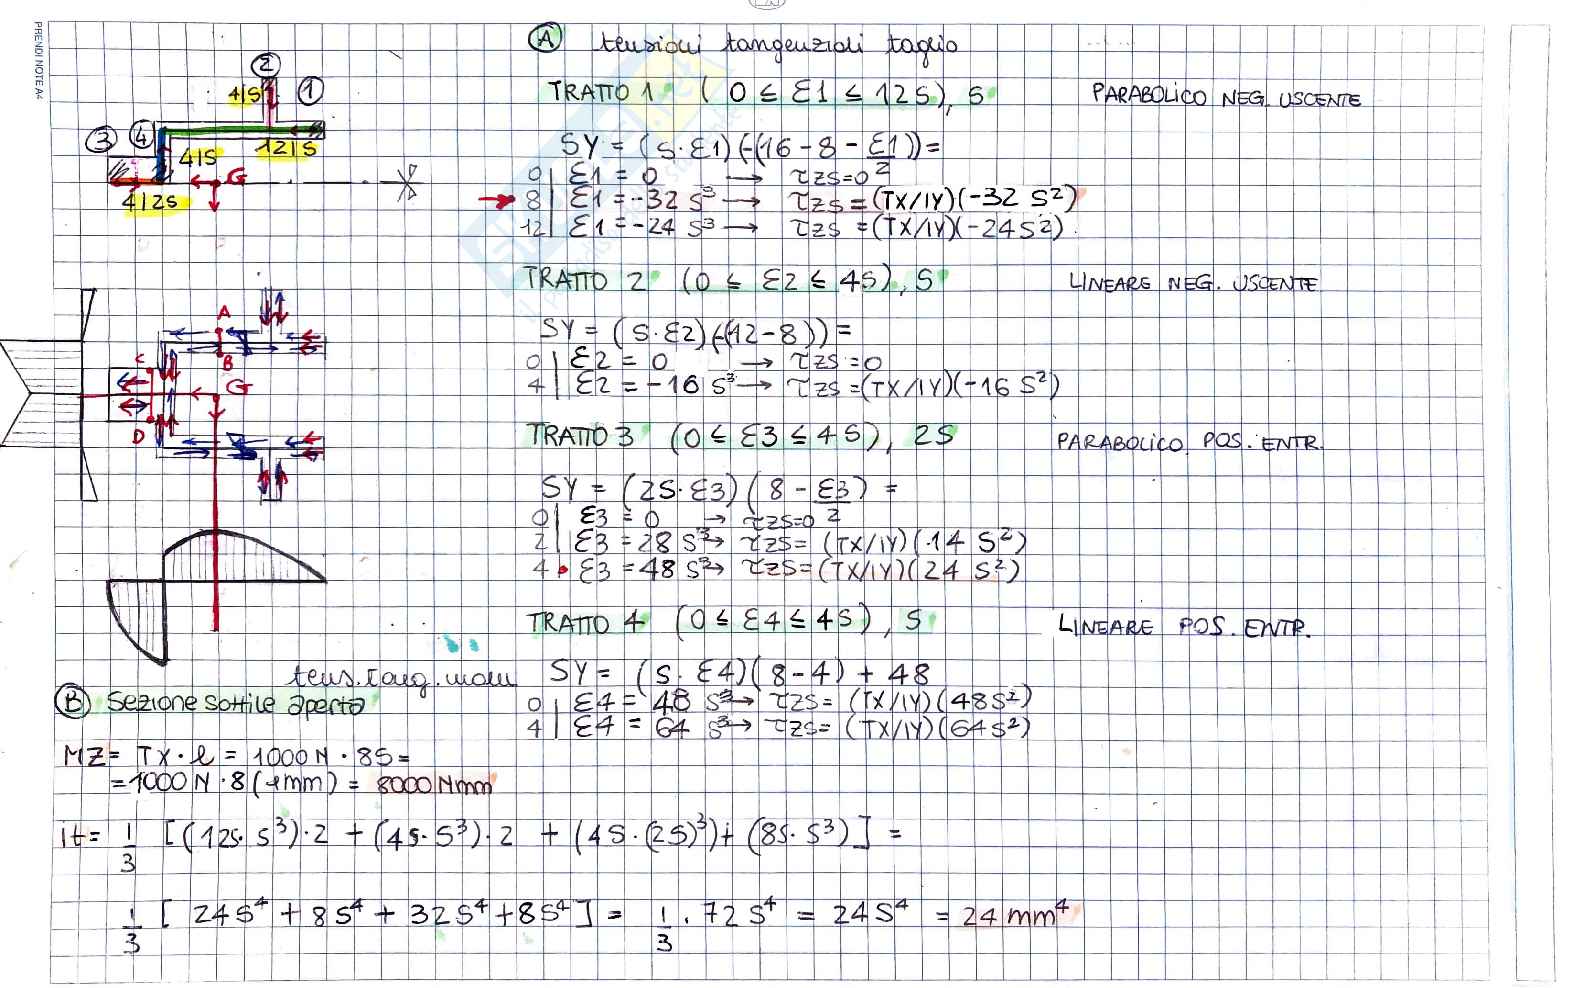 PRENDI NOTE A4
A tensioni tangenziali taglio
TRATTO 1 (0 ≤ ε1 ≤ 12S), S PARABOLICO NEG. USCENTE
SY = (S·ε1)(-(16-8-ε1/2))=
0| ε1 = 0 → τzs=0
8| ε1 = -32 S³ → τzs = (TX/IY)(-32 S²)
12| ε1 = -24 S³ → τzs = (TX/IY)(-24S²)
TRATTO 2 (0 ≤ ε2 ≤ 4S), S LINEARE NEG. USCENTE
SY = (S·ε2)(-(12-8))=
0| ε2 = 0 → τzs=0
4| ε2 = -16 S³ → τzs=(TX/IY)(-16 S²)
TRATTO 3 (0 ≤ ε3 ≤ 4S), 2S PARABOLICO POS. ENTR.
SY = (2S·ε3)(8-ε3/2) =
0| ε3 = 0 → τzs=0
2| ε3 = 28 S³ → τzs= (TX/IY)(14 S²)
4 ε3 = 48 S³ → τzs=(TX/IY)(24 S²)
TRATTO 4 (0 ≤ ε4 ≤ 4S), S LINEARE POS. ENTR.
SY = (S·ε4)(8-4) + 48
0| ε4 = 48 S³ → τzs= (TX/IY)(48S²)
4| ε4 = 64 S³ → τzs= (TX/IY)(64S²)
2
4|S 1
3 4
4|S 12|S
G
4|2S
A
B
C
G
D
tens. tang. mom
B Sezione sottile aperta
MZ= TX·l = 1000 N · 8S =
=1000 N · 8(1mm) = 8000 Nmm
It= 1/3 [(12S·S³)·2 + (4S·S³)·2 + (4S·(2S)³)+ (8S·S³)] =
1/3 [24S⁴ + 8S⁴ + 32S⁴ + 8S⁴] = 1/3 · 72S⁴ = 24S⁴ = 24 mm⁴